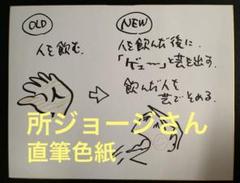 OLD
人を飲む。
NEW
人を飲んだ後に、
「ゲェーッ」と声を出す。
飲んだ人も
芸でそめる。
所ジョージさん
直筆色紙